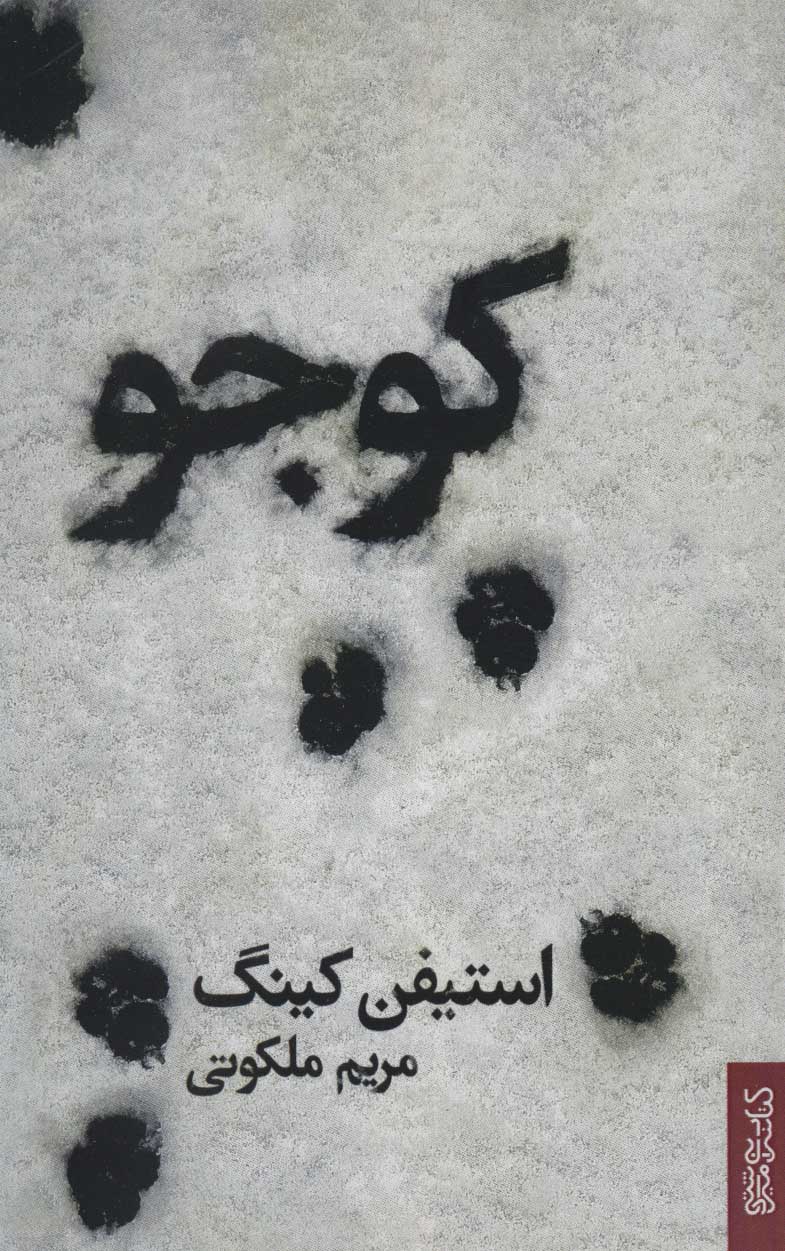 کوجو
استیفن کینگ
مریم ملکوتی
کتابسرای میردشتی